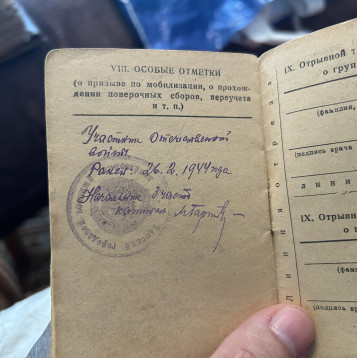 VIII. ОСОБЫЕ ОТМЕТКИ
(о призыве по мобилизации, о прохож-
дении поверочных сборов, переучета
и т. п.)
Участник Отечественной
войны.
Ранен: 26.2.1944 года
Начальник 3 части
капитан
IX. Отрывной т
о груп
(фамилия,
(подпись врача
линия
Линия отреза
IX. Отрывн
о г
(фам
(подпись вр